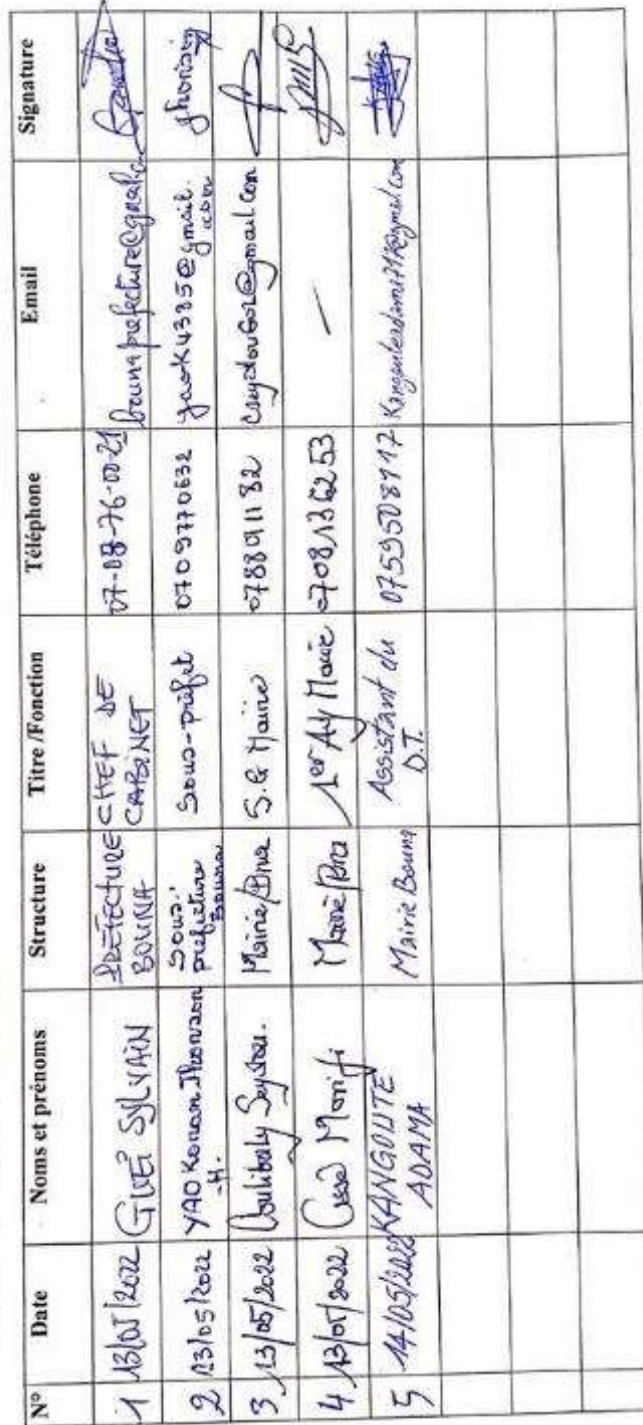 N° Date Noms et prénoms Structure Titre /Fonction Téléphone Email Signature
1 13/05/2022 GUEÏ SYLVAIN PREFECTURE BOUNA CHEF DE CABINET 07-08-76-00-21 bounaprefecture@gmail.c
2 13/05/2022 YAO Konan Thomson -H. Sous-prefecture Bouna Sous-préfet 0709770632 yaok4385@gmail.com
3 13/05/2022 Coulibaly Seydou. Mairie/Bna S.G Mairie 0788911 82
4 13/05/2022 Mairie/Bna 1er Adj Maire 0708136253 —
5 14/05/2022 KANGOUTE ADAMA Mairie Bouna Assistant du D.T. 0759508117